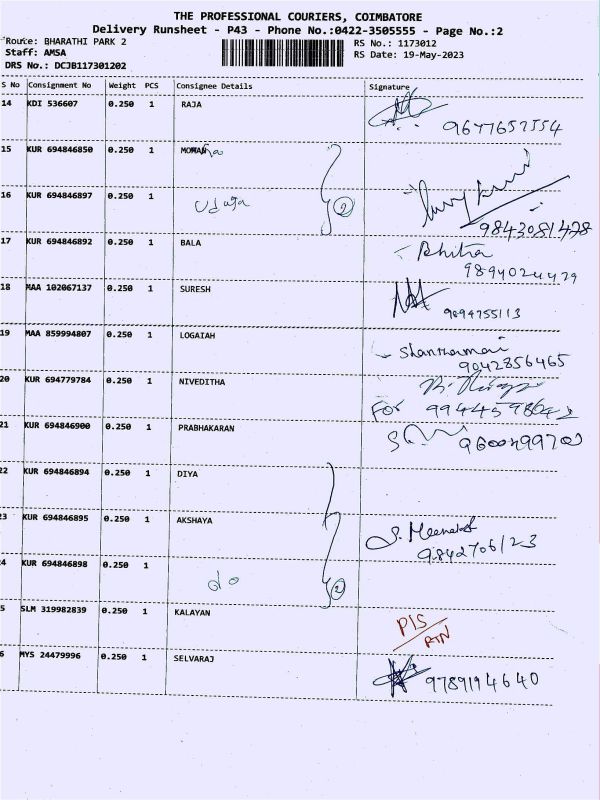 THE PROFESSIONAL COURIERS, COIMBATORE
Delivery Runsheet - P43 - Phone No.:0422-3505555 - Page No.:2
Route: BHARATHI PARK 2
RS No.: 1173012
Staff: AMSA
RS Date: 19-May-2023
DRS No.: DCJB117301202
S No Consignment No Weight PCS Consignee Details Signature
14 KDI 536607 0.250 1 RAJA
9677657554
15 KUR 694846850 0.250 1
16 KUR 694846897 0.250 1 2
9843081478
17 KUR 694846892 0.250 1 BALA
9894024479
18 MAA 102067137 0.250 1 SURESH
9894755113
19 MAA 859994807 0.250 1 LOGAIAH
9042856465
20 KUR 694779784 0.250 1 NIVEDITHA
For
21 KUR 694846900 0.250 1 PRABHAKARAN
22 KUR 694846894 0.250 1 DIYA
23 KUR 694846895 0.250 1 AKSHAYA
9842706123
24 KUR 694846898 0.250 1
do 2
5 SLM 319982839 0.250 1 KALAYAN
PIS
RTN
6 MYS 24479996 0.250 1 SELVARAJ
9789194640